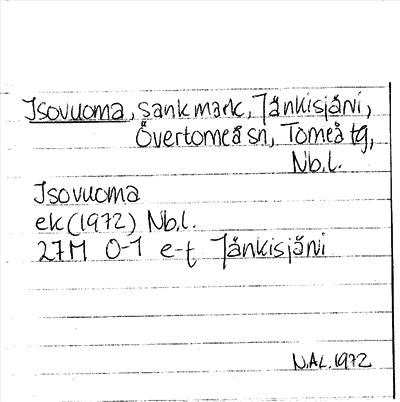 Isovuoma, sankmark, Jänkisjärvi,
Övertorneå sn, Torneå tg,
Nb.l.
Isovuoma
ek (1972) Nb.l.
27M 0-1 e-f Jänkisjärvi
N.Al. 1972